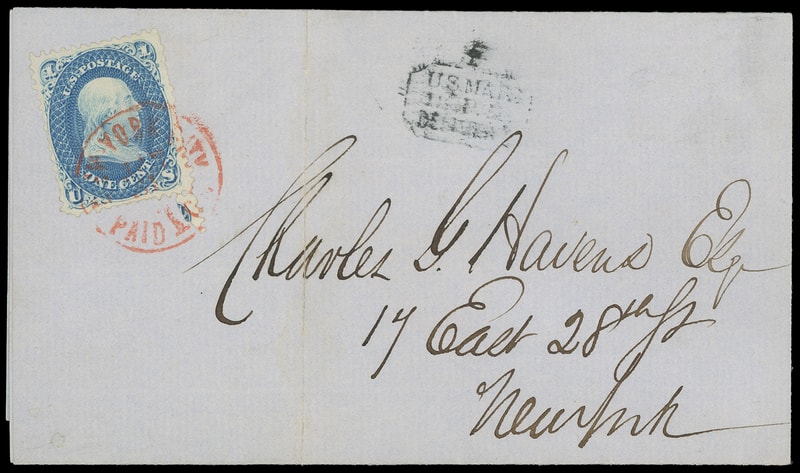 U.S. POSTAGE
1 1
ONE CENT
U S
PAID
U.S. MAIL
Charles G. Havens Esq
17 East 28th St
New York